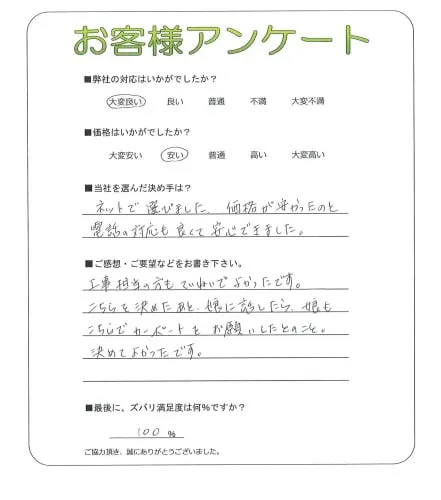 お客様アンケート
■弊社の対応はいかがでしたか？
大変良い 良い 普通 不満 大変不満
■価格はいかがでしたか？
大変安い 安い 普通 高い 大変高い
■当社を選んだ決め手は？
ネットで選びました 価格が安かったのと
電話の対応も良くて安心できました。
■ご感想・ご要望などをお書き下さい。
工事担当の方もていねいでよかったです。
こちらを決めたあと、娘に話したら、娘も
こちらでカーポートをお願いしたとのこと。
決めてよかったです。
■最後に、ズバリ満足度は何％ですか？
100 %
ご協力頂き、誠にありがとうございました。